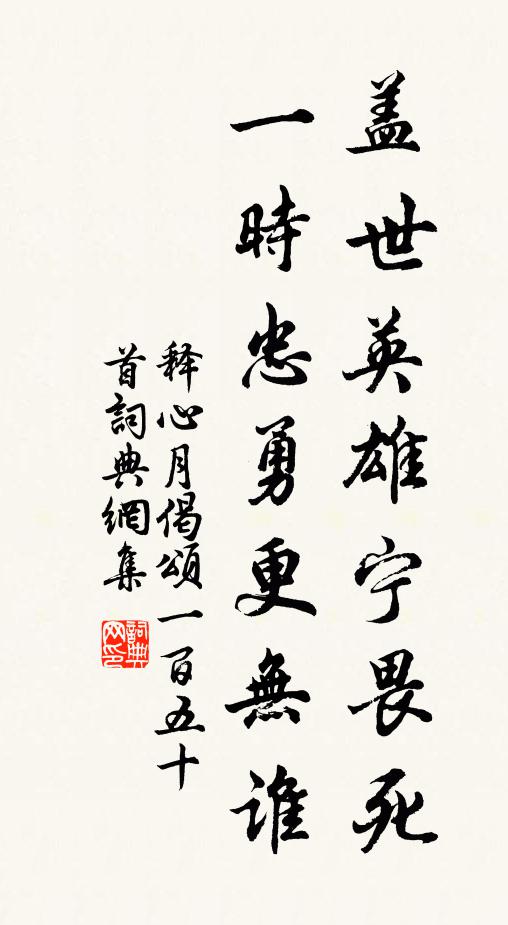 盖世英雄宁畏死
一時忠勇更無誰
释心月偈頌一百五十
首詞典網集
詞典网印